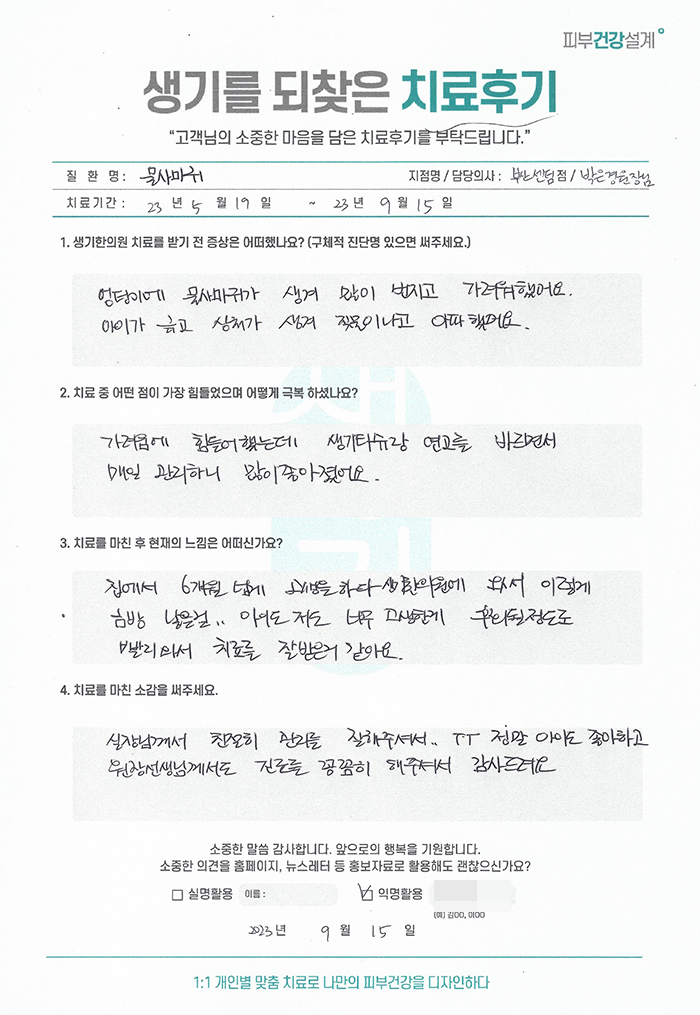 피부건강설계
생기를 되찾은 치료후기
“고객님의 소중한 마음을 담은 치료후기를 부탁드립니다.”
질 환 명 : 물사마귀 지점명 / 담당의사 : 부산센텀점 / 박은경원장님
치료기간 : 23 년 5 월 19 일 ~ 23 년 9 월 15 일
1. 생기한의원 치료를 받기 전 증상은 어떠했나요? (구체적 진단명 있으면 써주세요.)
엉덩이에 물사마귀가 생겨 많이 번지고 가려워했어요.
아이가 긁고 상처가 생겨 진물이나고 아파했어요.
2. 치료 중 어떤 점이 가장 힘들었으며 어떻게 극복 하셨나요?
가려움에 힘들어했는데 생기티슈랑 연고를 바르면서
매일 관리하니 많이좋아졌어요.
3. 치료를 마친 후 현재의 느낌은 어떠신가요?
집에서 6개월 넘게 고생을하다 생기한의원에 와서 이렇게
금방 낳은걸.. 아이도 저도 너무 고생한게 후회될정도로
빨리와서 치료를 잘받은거 같아요.
4. 치료를 마친 소감을 써주세요.
실장님께서 친절히 관리를 잘해주셔서.. TT 정말 아이도 좋아하고
원장선생님께서도 진료를 꼼꼼히 해주셔서 감사드려요
소중한 말씀 감사합니다. 앞으로의 행복을 기원합니다.
소중한 의견을 홈페이지, 뉴스레터 등 홍보자료로 활용해도 괜찮으신가요?
실명활용 이름 : 익명활용
(예) 김OO, 이OO
2023년 9 월 15 일
1:1 개인별 맞춤 치료로 나만의 피부건강을 디자인하다